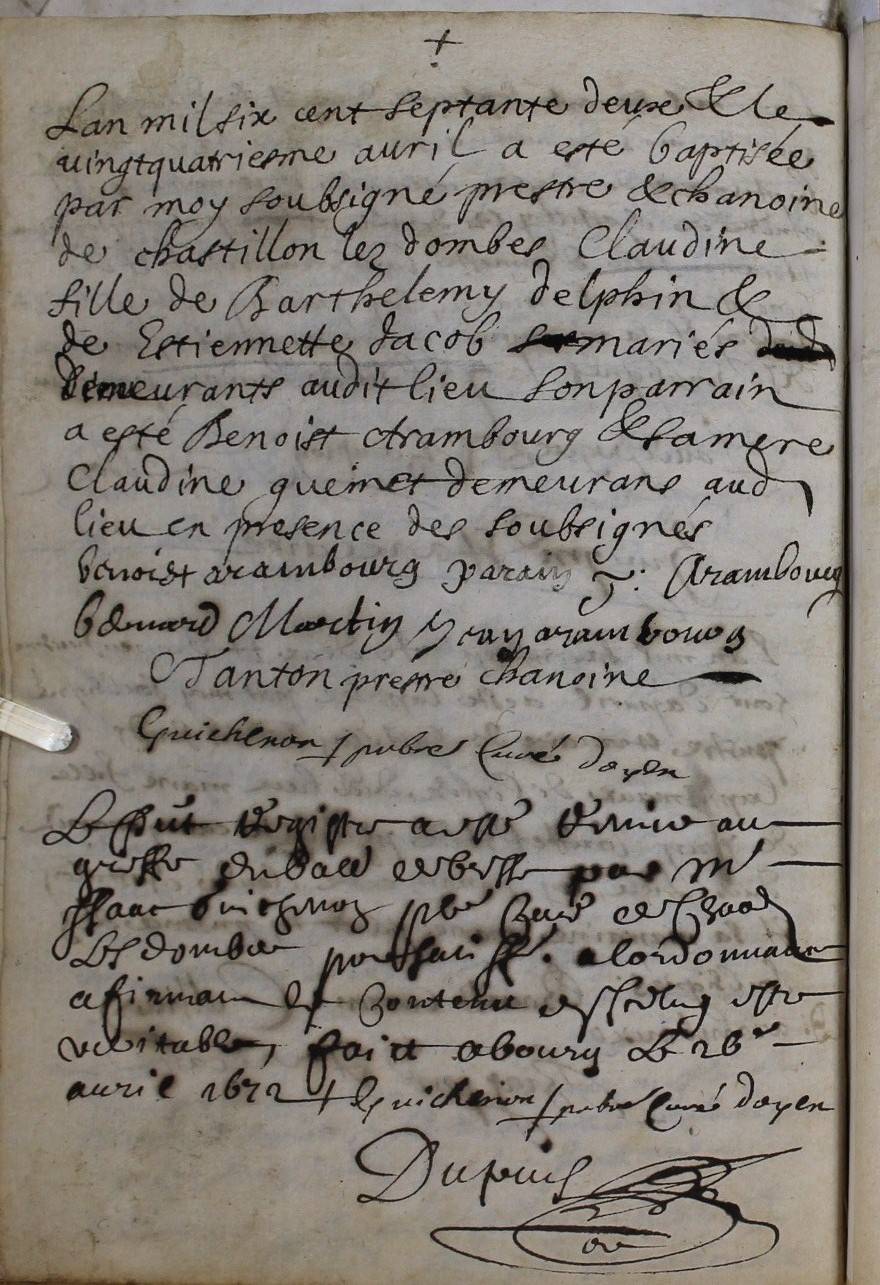 +
Lan mil six cent septante deux & le
vingtquatriesme avril a esté baptisée
par moy soubsigné prestre & chanoine
de chastillon lez dombes Claudine
fille de Barthelemy delphin &
de Estiennette Jacob mariés
demeurants audit lieu son parrain
a esté Benoist Arambourg & sa mere
Claudine gueinet demeurans aud
lieu en presence des soubsignés
benoist arambourg parain J: Arambourg
benard Martin Jean arambourg
Tanton prestre chanoine
Guichenon pbre Curé doyen
Le pnt Registre a esté Remis au
greffe du baill de bresse par Mr
Isaac Guichenon pbre Curé de Chaon
Les dombes pour satisfe. a lordonnance
afirmant le Contenu en Iceluy estre
veritable, faict a bourg Le 26e
avril 1672 Guichenon pbre Curé doyen
Dupuis